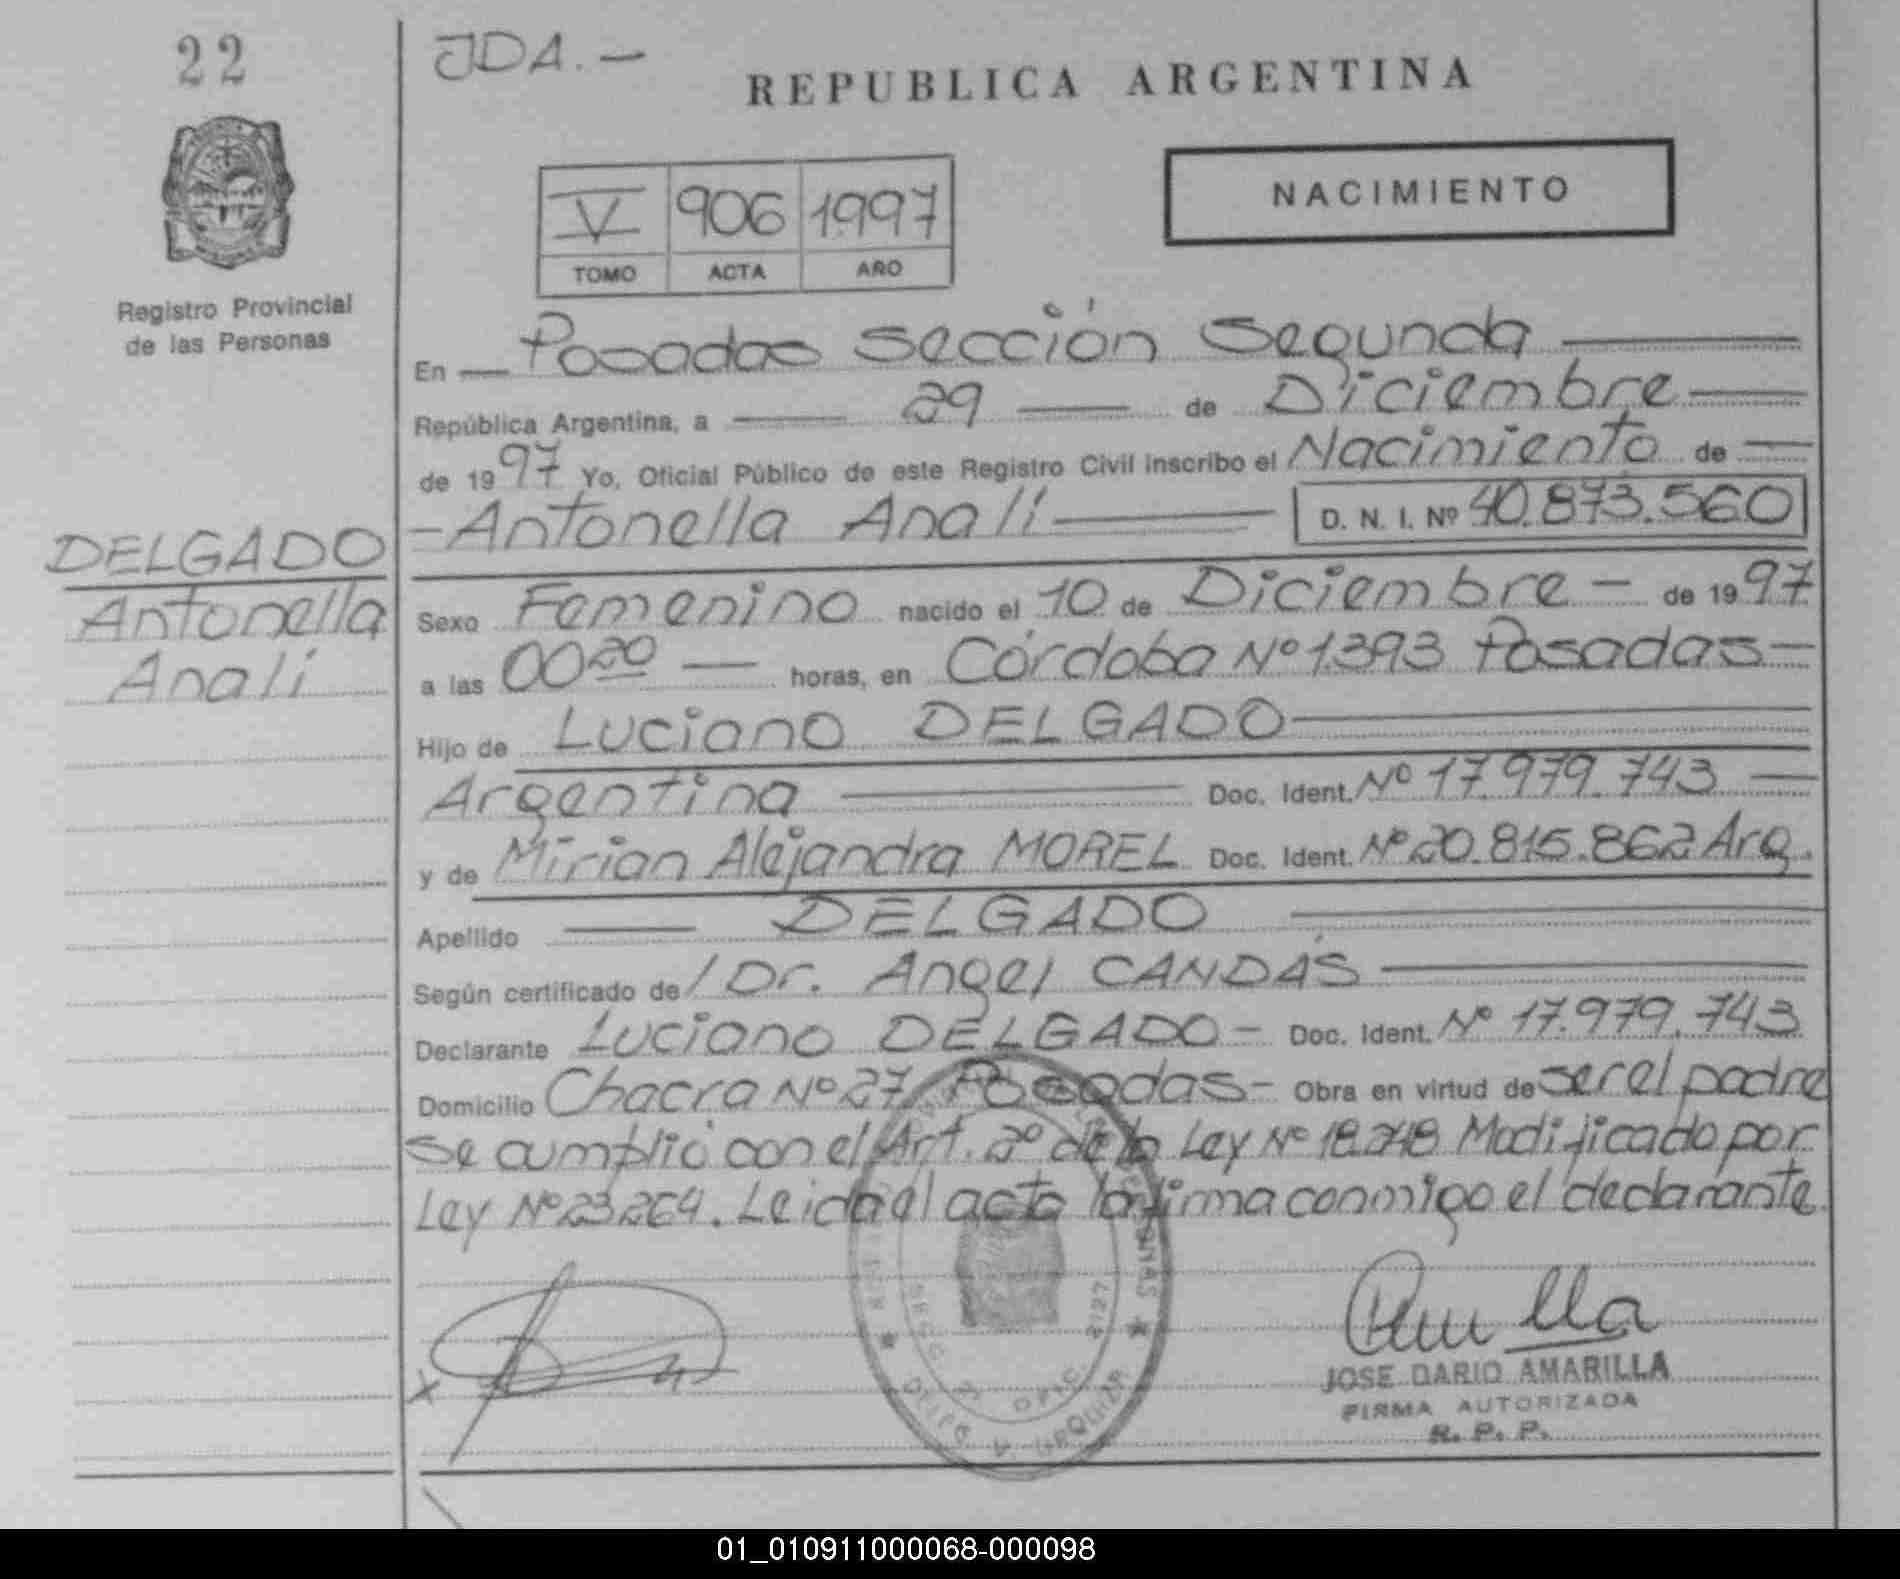 22
JDA.-
REPUBLICA ARGENTINA
V 906 1997
TOMO ACTA AÑO
NACIMIENTO
Registro Provincial
de las Personas
En Posadas Sección Segunda
República Argentina, a 29 de Diciembre
de 1997 Yo, Oficial Público de este Registro Civil inscribo el Nacimiento de
- Antonella Analí D. N. I. Nº 40.873.560
DELGADO
Antonella
Analí
Sexo Femenino nacido el 10 de Diciembre - de 1997
a las 00 20 horas, en Córdoba Nº 1393 Posadas-
Hijo de Luciano DELGADO
Argentina Doc. Ident. Nº 17.979.743
y de Mirian Alejandra MOREL Doc. Ident. Nº 20.815.862 Arg.
Apellido DELGADO
Según certificado de / Dr. Angel CANDÁS
Declarante Luciano DELGADO- Doc. Ident. Nº 17.979.743
Domicilio Chacra Nº 27 Posadas- Obra en virtud de ser el padre
Se cumplió con el Art. 2º de la Ley Nº 18.248 Modificado por
Ley Nº 23.264. Leida el acta la firma conmigo el declarante.
X
JOSE DARIO AMARILLA
FIRMA AUTORIZADA
R. P. P.
01_010911000068-000098